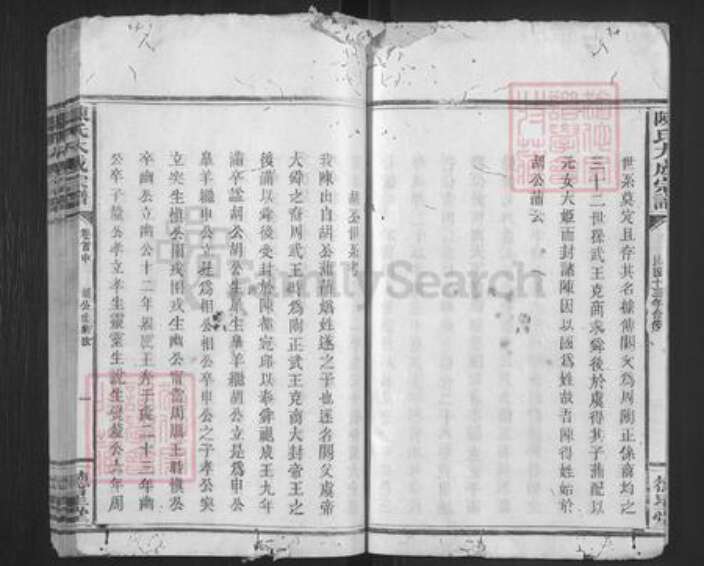 陳氏大成宗譜
世系莫定且存其名據傳閼父為周陶正係商均之
三十二世孫武王克商求舜後於虞得其子滿配以
元女大姬而封諸陳因以國為姓故吾陳得姓始於
胡公滿云
民國十三年合修
胡公世系考
我陳出自胡公滿滿媯姓遂之子也逐名閼父虞帝
大舜之裔周武王時為陶正武王克商大封帝王之
後滿以舜後受封於陳都宛邱以奉舜祀成王九年
滿卒諡胡公胡公生皐生皐羊繼胡公立是為申公
皐羊繼申公立是為相公相公卒申公之子孝公突
立突生慎公圉戎圉戎生幽公甯當周厲王時慎公
卒幽公立幽公十二年厲王奔于彘二十三年幽
公卒子釐公孝立孝生靈靈生說生燮釐公六年周
陳氏大成宗譜
卷首中
胡公世系考
一
FamilySearch